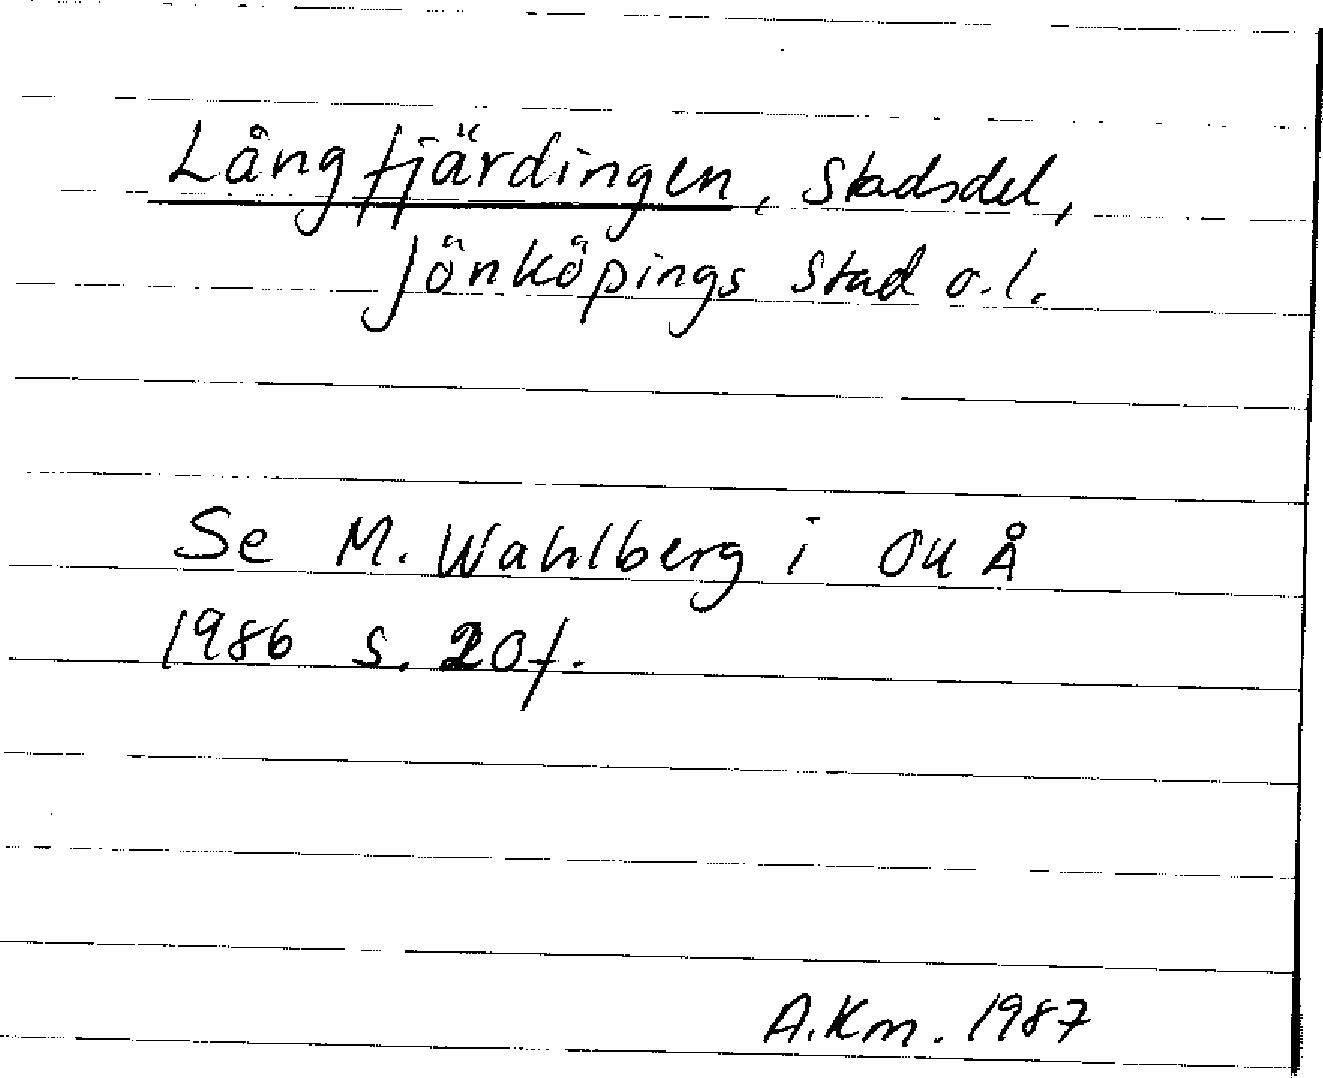 Långfjärdingen, Stadsdel,
Jönköpings Stad o.l.
Se M. Wahlberg i OUÅ
1986 s. 20f.
A.Km. 1987